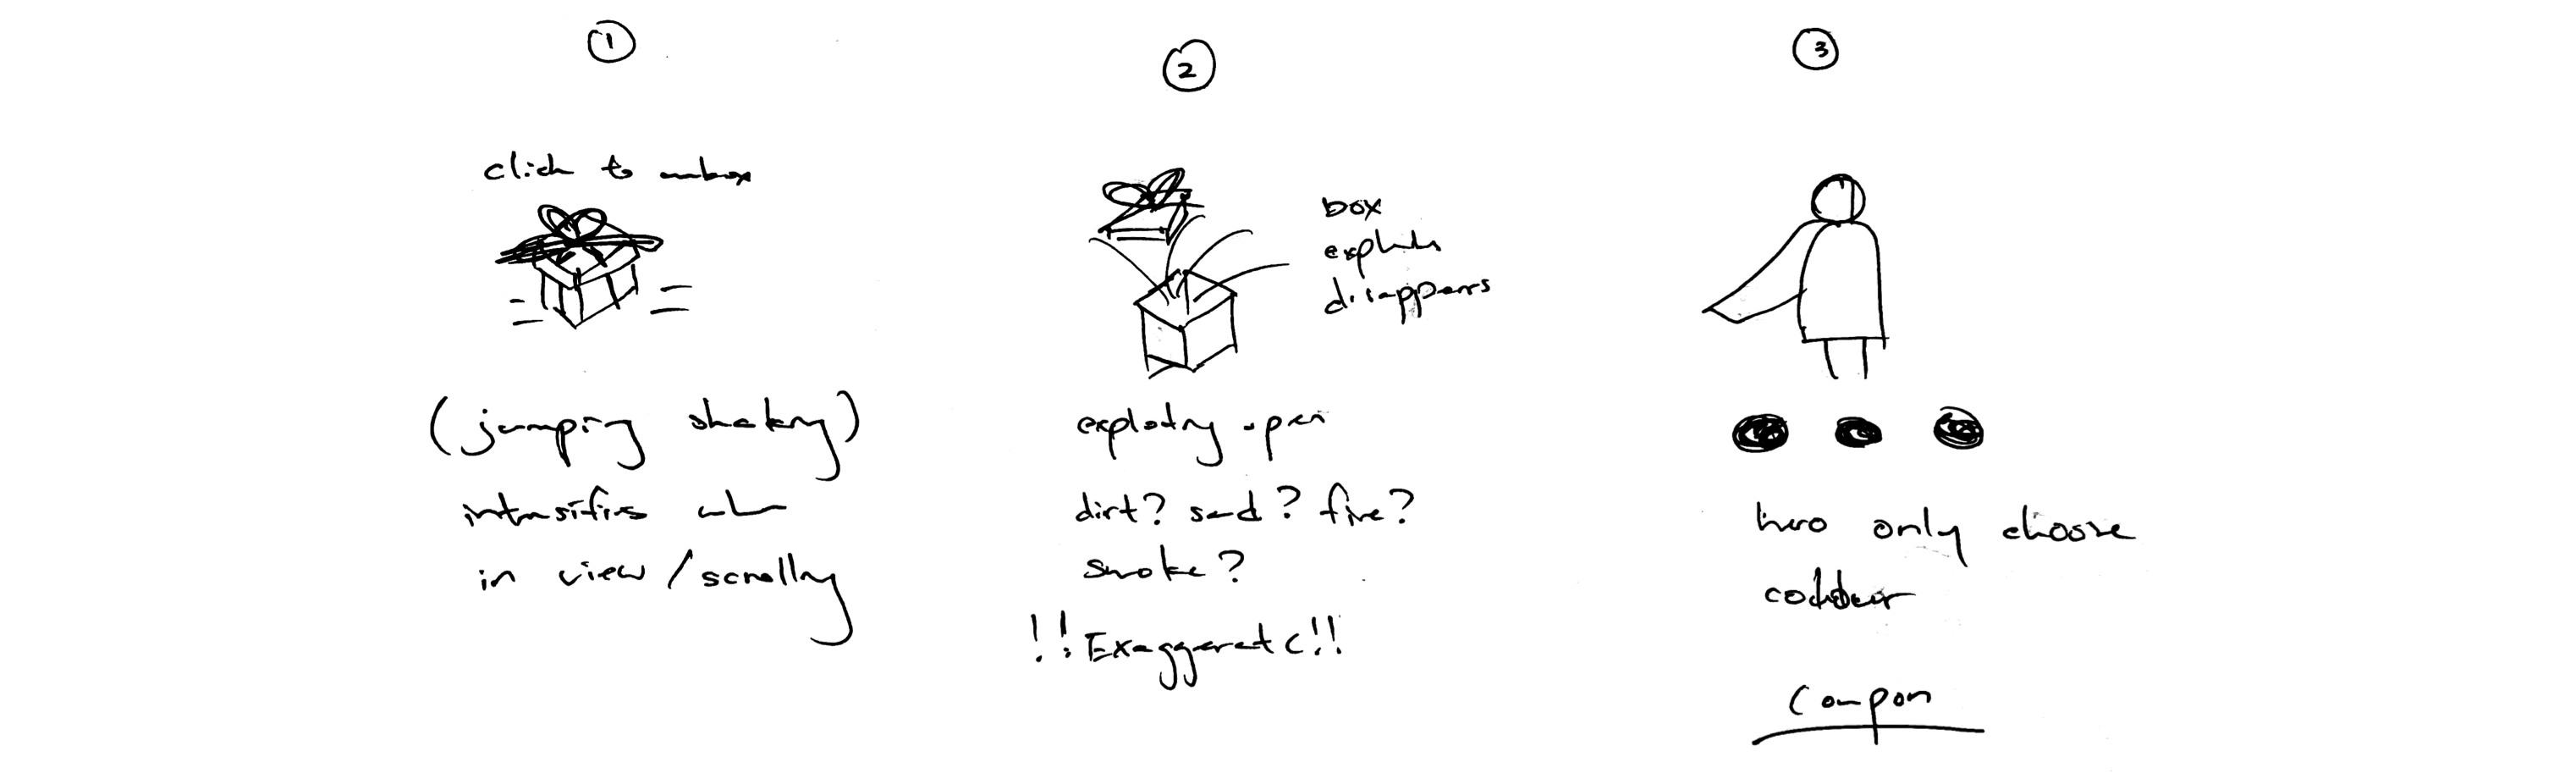 1
click to unbox
(jumping shaking)
intensifies when
in view / scrolling
2
box
explodes
disappears
exploding open
dirt? sand? fire?
smoke?
!!Exaggerate!!
3
hero only choose
colour
Coupon